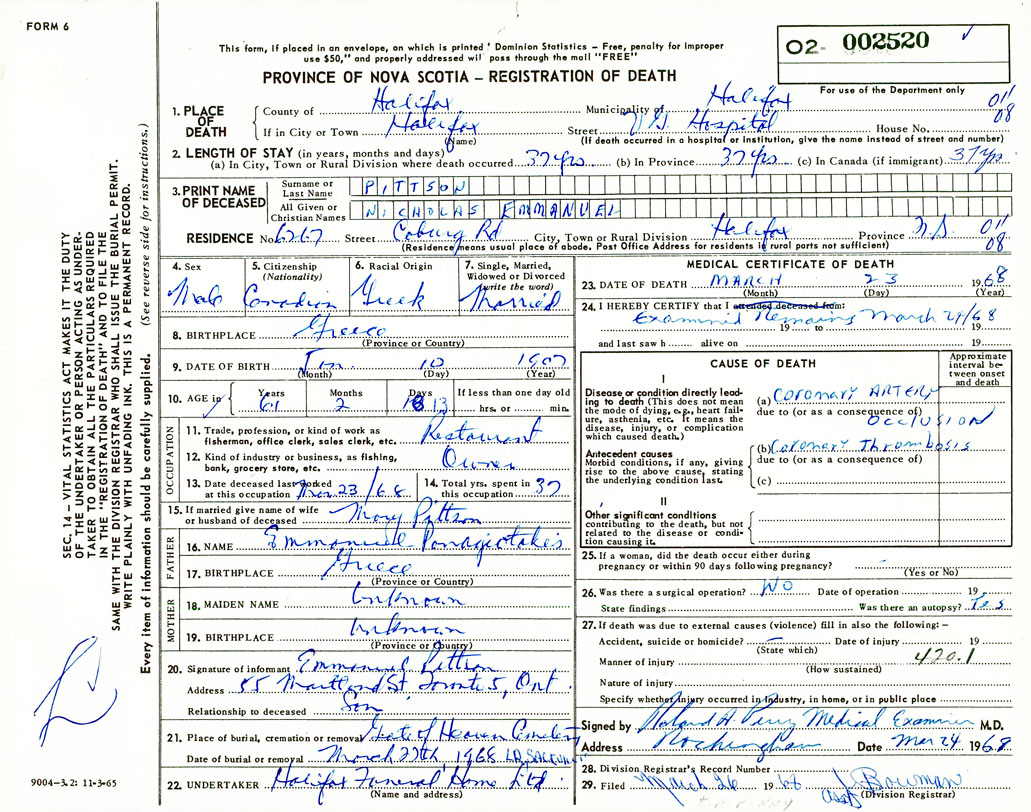 FORM 6
This form, if placed in an envelope, on which is printed ' Dominion Statistics – Free, penalty for improper
use $50," and properly addressed wil pass through the mail "FREE"
PROVINCE OF NOVA SCOTIA – REGISTRATION OF DEATH
O2- 002520
For use of the Department only
1. PLACE OF DEATH
County of Halifax Municipality of Halifax 011
If in City or Town Halifax Street V G Hospital House No. 08
(Name) (If death occurred in a hospital or institution, give the name instead of street and number)
2. LENGTH OF STAY (in years, months and days)
(a) In City, Town or Rural Division where death occurred 37 yrs (b) In Province 37 yrs (c) In Canada (if immigrant) 37 yrs
3. PRINT NAME OF DECEASED
Surname or Last Name PITTSON
All Given or Christian Names NICHOLAS EMMANUEL
RESIDENCE No. 6267 Street Coburg Rd City, Town or Rural Division Halifax Province N.S. 011
(Residence means usual place of abode. Post Office Address for residents in rural parts not sufficient) 08
4. Sex Male
5. Citizenship (Nationality) Canadian
6. Racial Origin Greek
7. Single, Married, Widowed or Divorced (write the word) Married
8. BIRTHPLACE Greece
(Province or Country)
9. DATE OF BIRTH Jan 10 1907
(Month) (Day) (Year)
10. AGE in Years 61 Months 2 Days 13 If less than one day old hrs. or min.
OCCUPATION
11. Trade, profession, or kind of work as fisherman, office clerk, sales clerk, etc. Restaurant
12. Kind of industry or business, as fishing, bank, grocery store, etc. Owner
13. Date deceased last worked at this occupation Mar 23/68
14. Total yrs. spent in this occupation 37
15. If married give name of wife or husband of deceased Mary Pittson
FATHER
16. NAME Emmanuel Panagiotakes
17. BIRTHPLACE Greece
(Province or Country)
MOTHER
18. MAIDEN NAME Unknown
19. BIRTHPLACE Unknown
(Province or Country)
20. Signature of informant Emmanuel Pittson
Address 55 Maitland St, Toronto 5, Ont.
Relationship to deceased Son
21. Place of burial, cremation or removal Gate of Heaven Cemetery
Date of burial or removal March 27th, 1968
22. UNDERTAKER Halifax Funeral Home Ltd.
(Name and address)
MEDICAL CERTIFICATE OF DEATH
23. DATE OF DEATH MARCH 23 1968
(Month) (Day) (Year)
24. I HEREBY CERTIFY that I attended deceased from:
Examined Remains March 24/68
19 to 19
and last saw h alive on 19
CAUSE OF DEATH
Approximate interval between onset and death
I
Disease or condition directly leading to death (This does not mean the mode of dying, e.g., heart failure, asthenia, etc. It means the disease, injury, or complication which caused death.)
(a) Coronary ARTERY
due to (or as a consequence of)
OCCLUSION
Antecedent causes
Morbid conditions, if any, giving rise to the above cause, stating the underlying condition last.
(b) Coronary Thrombosis
due to (or as a consequence of)
(c)
II
Other significant conditions
contributing to the death, but not related to the disease or condition causing it.
25. If a woman, did the death occur either during
pregnancy or within 90 days following pregnancy?
(Yes or No)
26. Was there a surgical operation? NO Date of operation 19
State findings Was there an autopsy? Yes
27. If death was due to external causes (violence) fill in also the following: –
Accident, suicide or homicide? – Date of injury 19
(State which)
Manner of injury 420.1
(How sustained)
Nature of injury
Specify whether injury occurred in industry, in home, or in public place
Signed by Roland H. Perry Medical Examiner M.D.
Address Rockingham Date Mar 24 1968
28. Division Registrar's Record Number
29. Filed March 26 1968 J. Bowman
(Division Registrar)
SEC. 14 – VITAL STATISTICS ACT MAKES IT THE DUTY
OF THE UNDERTAKER OR PERSON ACTING AS UNDER-
TAKER TO OBTAIN ALL THE PARTICULARS REQUIRED
IN THE "REGISTRATION OF DEATH" AND TO FILE THE
SAME WITH THE DIVISION REGISTRAR WHO SHALL ISSUE THE BURIAL PERMIT.
WRITE PLAINLY WITH UNFADING INK. THIS IS A PERMANENT RECORD.
Every item of information should be carefully supplied. (See reverse side for instructions.)
9004–3.2: 11-3-65